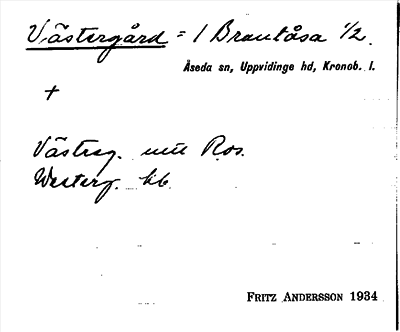 Västergård = 1 Brantåsa 1/2.
Åseda sn, Uppvidinge hd, Kronob. l.
+
Västerg. mtl Ros.
Westerg. hb.
FRITZ ANDERSSON 1934